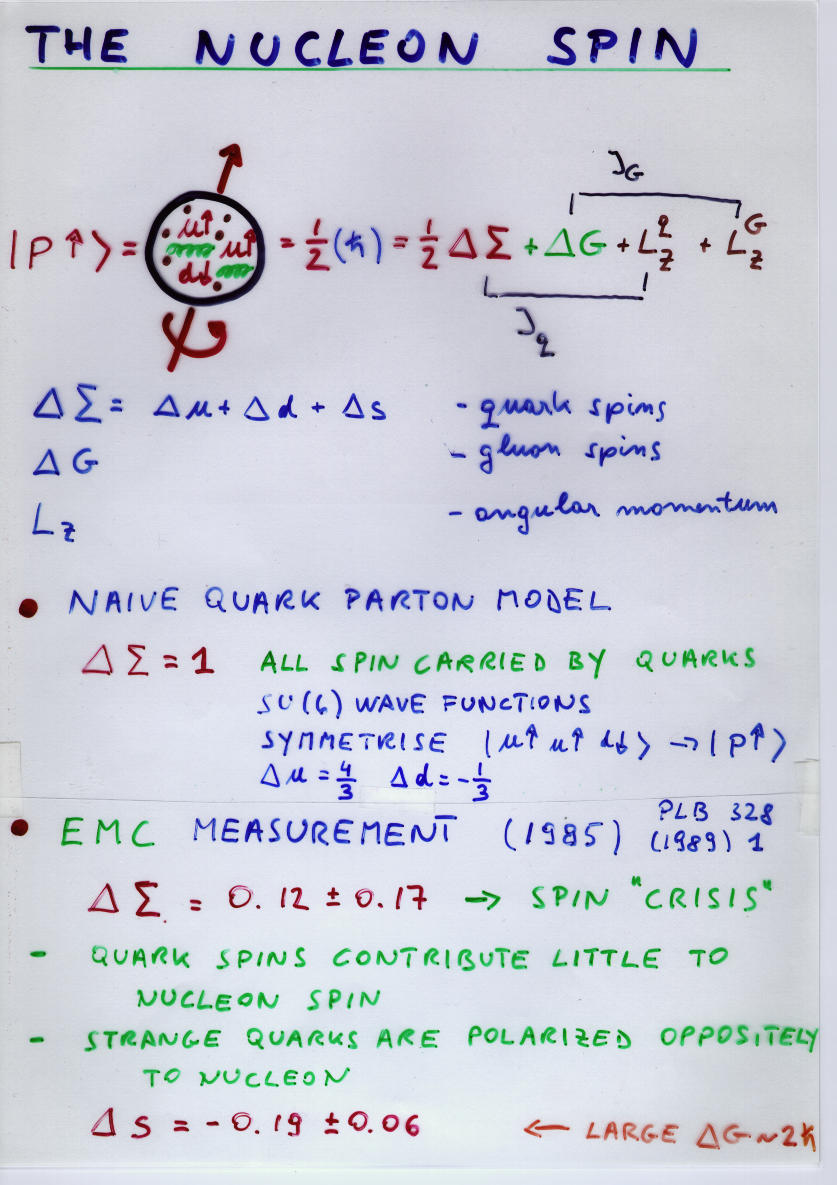 THE NUCLEON SPIN
J_G
|P↑⟩ = u↑ u↑ d↓ = 1/2 (ħ) = 1/2 ΔΣ + ΔG + L_z^q + L_z^G
J_q
ΔΣ = Δu + Δd + Δs - quark spins
ΔG - gluon spins
L_z - angular momentum
• NAIVE QUARK PARTON MODEL
ΔΣ = 1 ALL SPIN CARRIED BY QUARKS
SU(6) WAVE FUNCTIONS
SYMMETRISE |u↑ u↑ d↓⟩ → |P↑⟩
Δu = 4/3 Δd = -1/3
• EMC MEASUREMENT (1985) PLB 328
(1989) 1
ΔΣ = 0.12 ± 0.17 → SPIN "CRISIS"
- QUARK SPINS CONTRIBUTE LITTLE TO
NUCLEON SPIN
- STRANGE QUARKS ARE POLARIZED OPPOSITELY
TO NUCLEON
Δs = -0.19 ± 0.06 ← LARGE ΔG ~ 2ħ